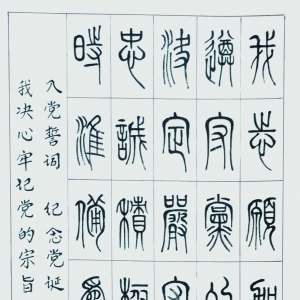 我志願加
遵守黨
決定嚴守
忠誠積極
時準備為
入党誓词 纪念党诞
我决心牢记党的宗旨